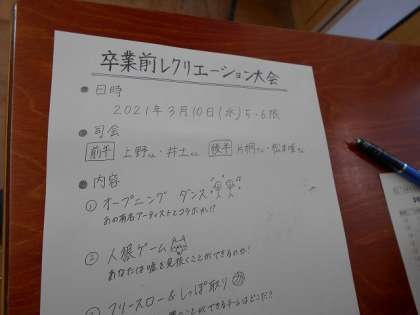 卒業前レクリエーション大会
● 日時
2021年3月10日(水) 5・6限
● 司会
前半 上野さん・井土さん 後半 片桐さん・松本さん
● 内容
① オープニング ダンス
あの有名アーティストとコラボか!?
② 人狼ゲーム
あなたは嘘を見抜くことができるのか!
③ フリースロー&しっぽ取り
ことができるチームはどこだ?